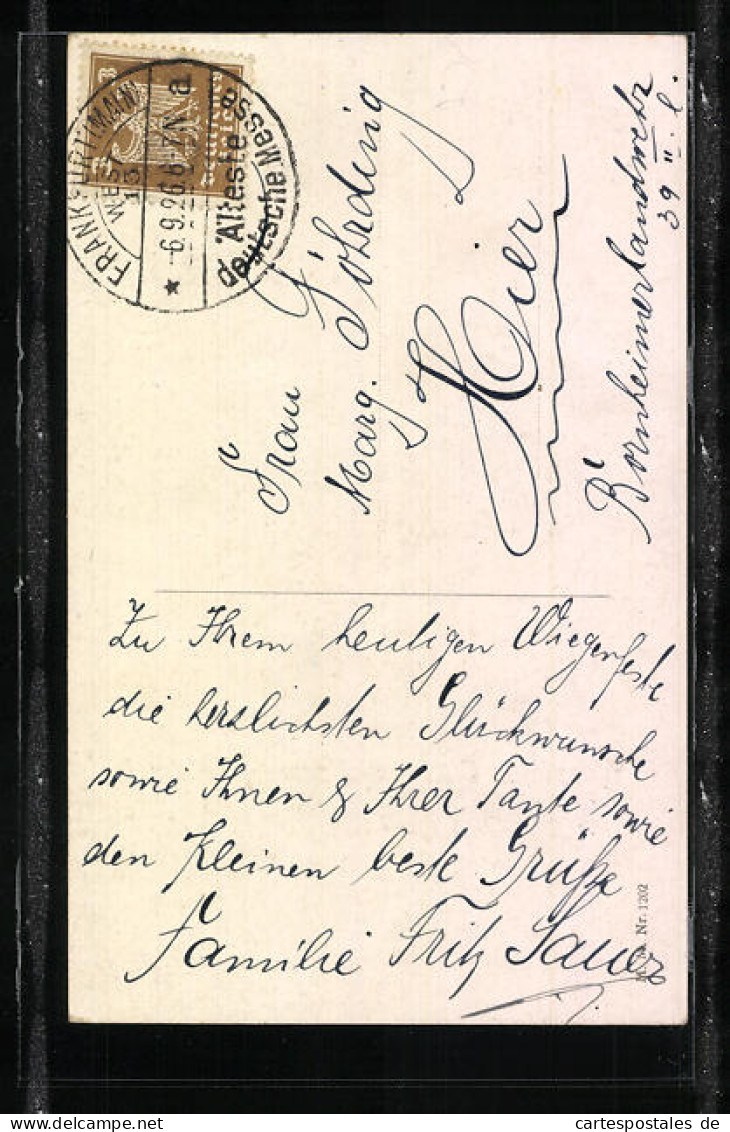 FRANKFURT (MAIN)
WEST
13
* 6.9.26.6-7N a
Älteste
deutsche Messe
3
Frau
Marg. Döhrding
Hier
Bornheimerlandwehr
39 II. l.
Zu Ihrem heutigen Wiegenfeste
die herzlichsten Glückwünsche
sowie Ihnen & Ihrer Tante sowie
den Kleinen beste Grüße
Familie Fritz Sauer
Nr. 1202
cartespostales de